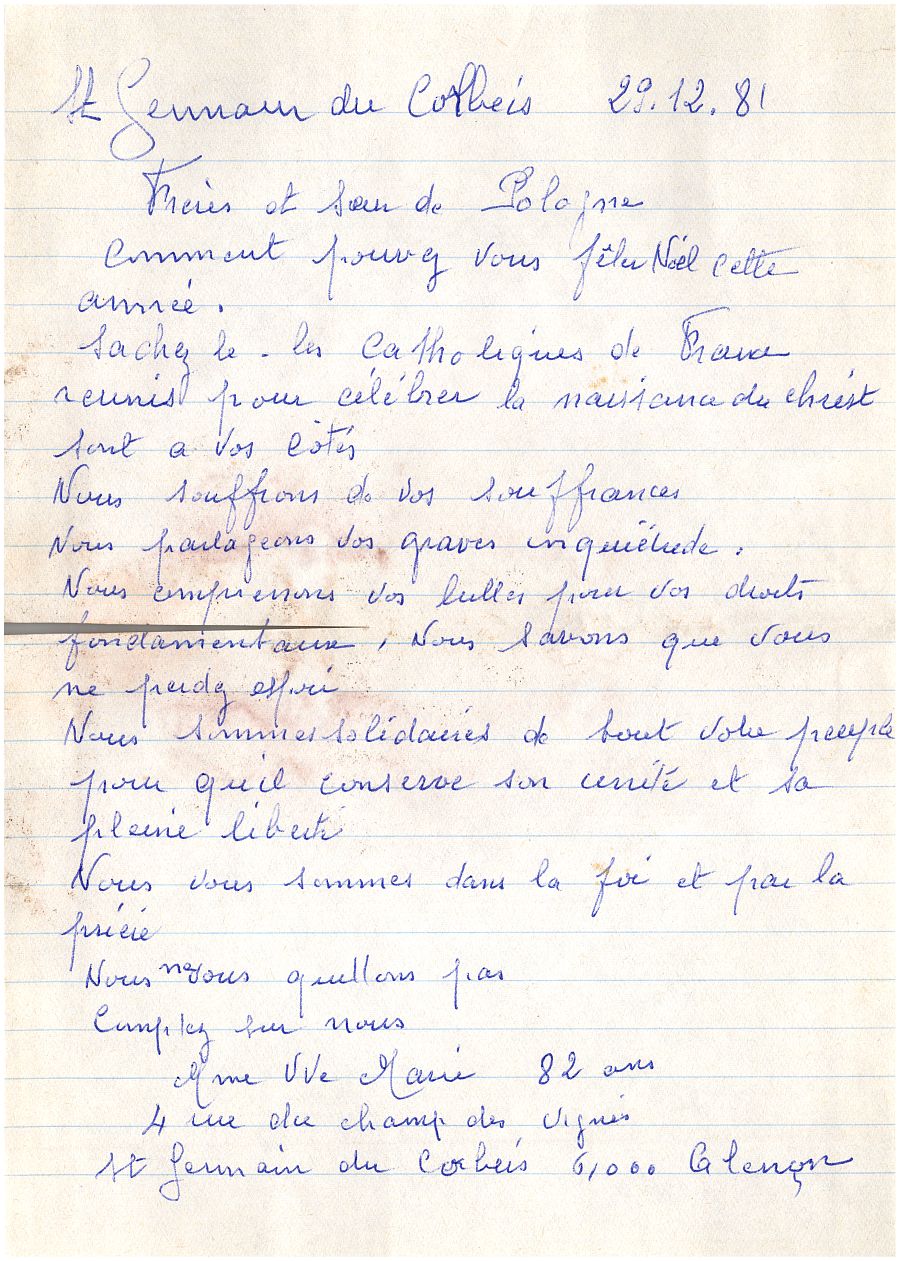 St Germain du Corbeis 29.12.81
Frères et sœur de Pologne
Comment pouvez vous fêter Noël cette
année.
Sachez le - les Catholiques de France
reunis pour célébrer la naissance du christ
sont a vos côtés
Nous souffrons de vos souffrances
Nous partageons vos graves inquiétude.
Nous comprenons vos luttes pour vos droits
fondamentaux, Nous savons que vous
ne perdez espoi
Nous sommes solidaires de tout votre peuple
pour qu'il conserve son unité et sa
pleine liberté
Nous vous sommes dans la foi et par la
prière
Nous ne vous quittons pas
Comptez sur nous
Mme Vve Marie 82 ans
4 rue du champ des vignes
St Germain du Corbeis 61,000 Alençon